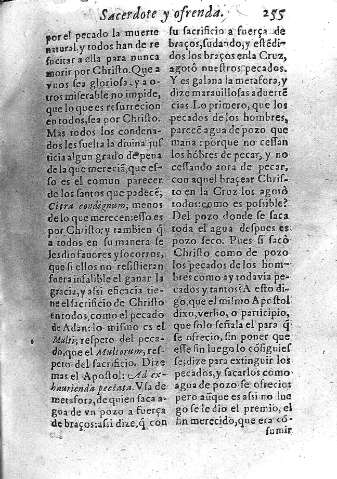 Sacerdote y ofrenda. 255
por el pecado la muerte
natural, y todos han de re-
sucitar a ella para nunca
morir por Christo. Que a
vnos sea gloriosa, y a o-
tros miserable no impide,
que lo que es resurrecion
en todos, sea por Christo.
Mas todos los condena-
dos les suelta la diuina jus
ticia algun grado de pena
de la que merecia, que es-
so es el comun parecer
de los santos que padecē,
Citra condignum, menos
de lo que merecen: esso es
por Christo: y tambien q̄
a todos en su manera se
les dio fauores y socorros,
que si ellos no resistieran
fuera infalible el ganar la
gracia, y assi eficacia tie-
ne el sacrificio de Christo
en todos, como el pecado
de Adan: lo mismo es el
Multi, respeto del peca-
do, que el Multorum, res-
peto del sacrificio. Dize
mas el Apostol: Ad ex-
haurienda peccata. Vsa de
metafora, de quien saca a-
gua de vn pozo a fuerça
de braços: assi dize, q̄ con
su sacrificio a fuerça de
braços, sudando, y estēdi-
dos los braços en la Cruz,
agotò nuestros pecados.
Y es galana la metafora, y
dize marauillosas aduertē
cias. Lo primero, que los
pecados de los hombres,
parecē agua de pozo que
mana: porque no cessan
los hōbres de pecar, y no
cessando aora de pecar,
con aquel bracear Chris-
to en la Cruz los agotò
todos: como es posible?
Del pozo donde se saca
toda el agua despues es
pozo seco. Pues si sacò
Christo como de pozo
los pecados de los hom-
bres como ay todavia pe-
cados y tantos? A esto di-
go, que el mismo Apostol
dixo, verbo, o participio,
que solo señala el para q̄
se ofrecio, sin poner que
esse fin luego lo cōsiguies
se; dize para extinguir los
pecados, y sacarlos como
agua de pozo se ofrecio:
pero aūque es assi no lue
go se le dio el premio, el
fin merecido, que era cō-
sumir